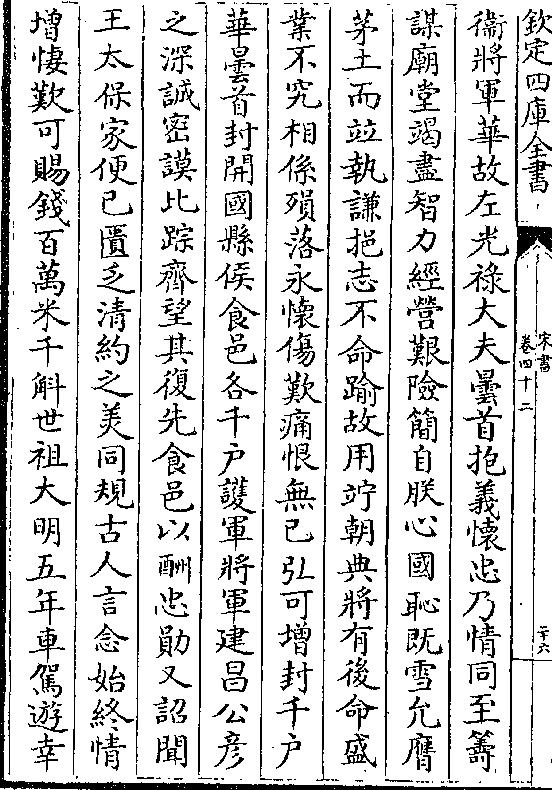 欽定四庫全書
宋書
卷四十二
二十六
衞將軍華故左光祿大夫曇首抱義懷忠乃情同至籌
謀廟堂竭盡智力經營艱險簡自朕心國恥既雪允膺
茅土而竝執謙挹志不命踰故用竚朝典將有後命盛
業不究相係殞落永懷傷歎痛恨無已弘可增封千户
華曇首封開國縣侯食邑各千户護軍將軍建昌公彦
之深誠密謨比踪齊望其復先食邑以酬忠勛又詔聞
王太保家便已匱乏清約之美同規古人言念始終情
增悽歎可賜錢百萬米千斛世祖大明五年車駕遊幸